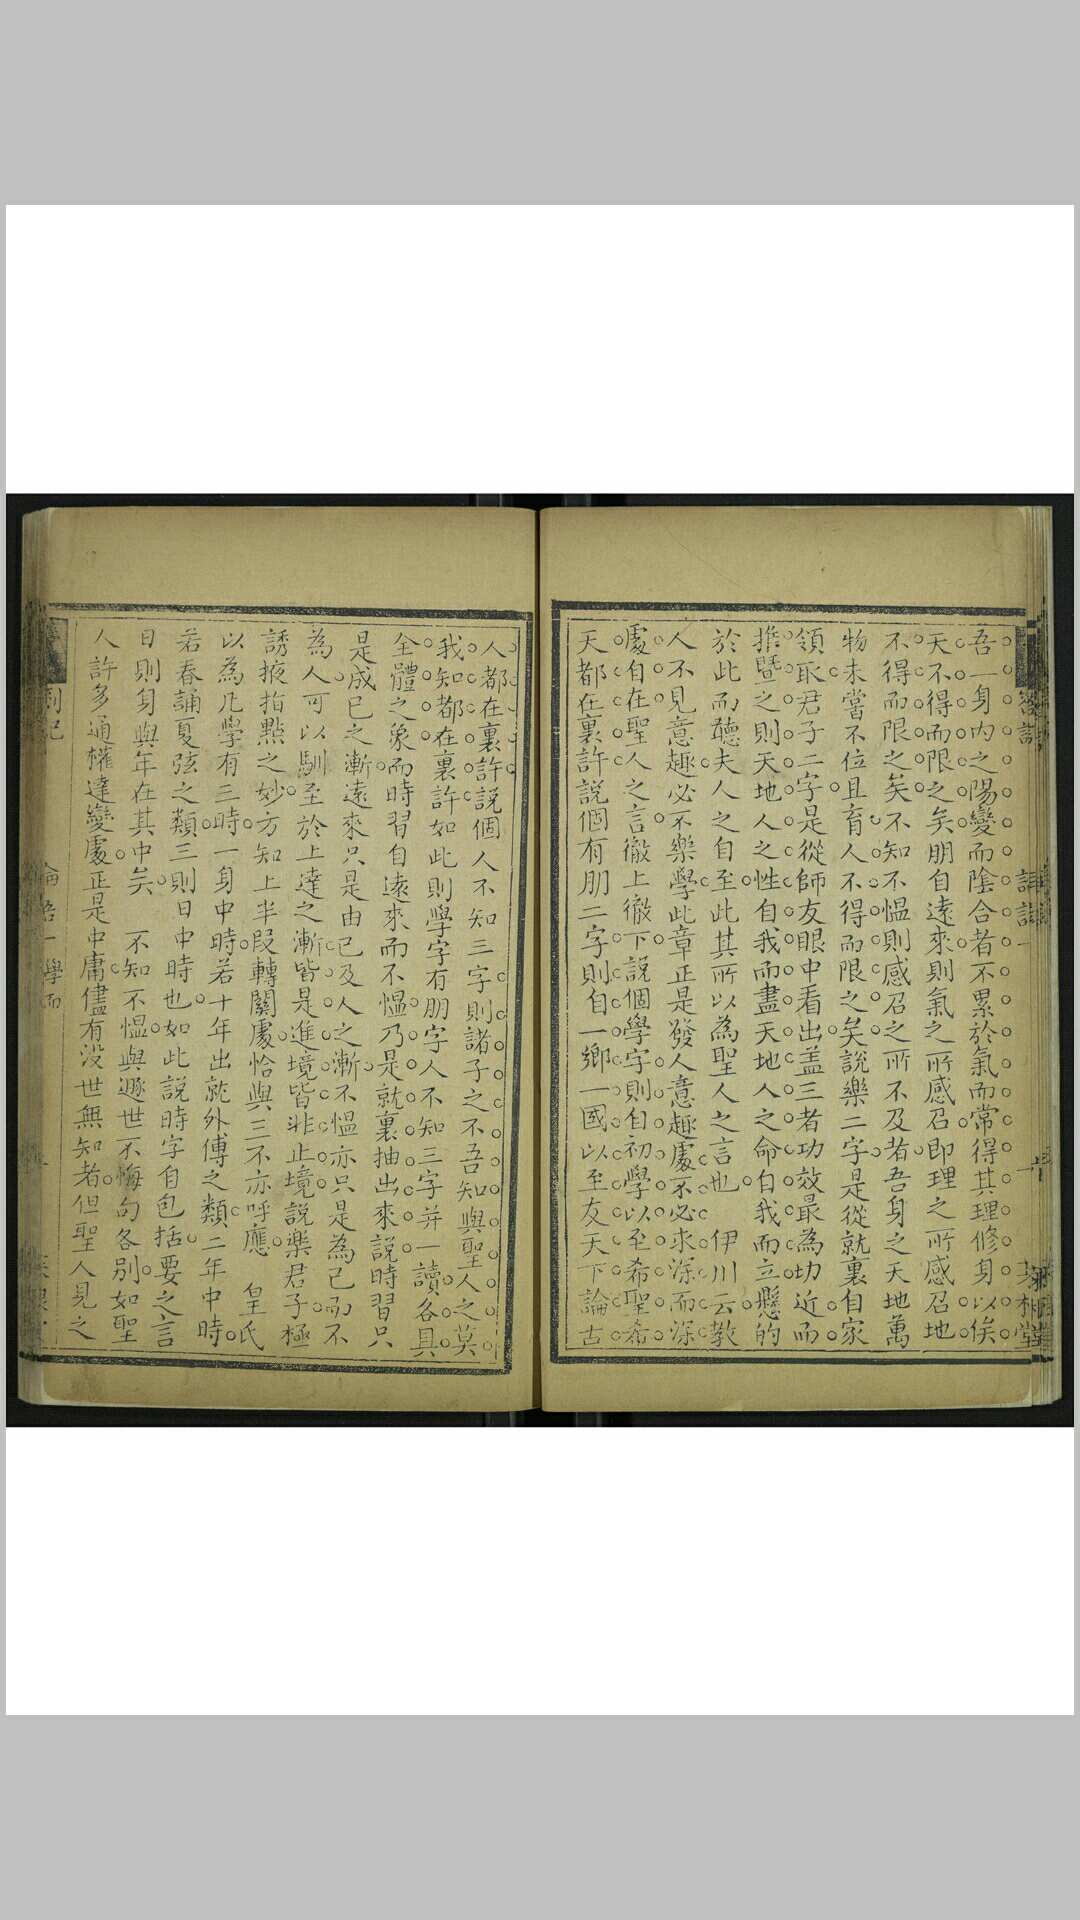 吾一身內之陽變而陰合者不累於氣而常得其理修身以俟
天不得而限之矣朋自遠來則氣之所感召即理之所感召地
不得而限之矣不知不愠則感召之所不及者吾身之天地萬
物未嘗不位且育人不得而限之矣說樂二字是從就裏自家
領取君子二字是從師友眼中看出盖三者功效最為切近而
推暨之則天地人之性自我而盡天地人之命自我而立懸的
於此而聽夫人之自至此其所以為聖人之言也 伊川云教
人不見意趣必不樂學此章正是發人意趣處不必求深而深
處自在聖人之言徹上徹下說個學字則自初學以至希聖希
天都在裏許說個有朋二字則自一鄉一國以至友天下論古
人都在裏許說個人不知三字則諸子之不吾知與聖人之莫
我知都在裏許如此則學字有朋字人不知三字并一讀各具
全體之象而時習自遠來而不愠乃是就裏抽出來說時習只
是成已之漸遠來只是由已及人之漸不愠亦只是為己而不
為人可以馴至於上達之漸皆是進境皆非止境說樂君子極
誘掖指點之妙方知上半段轉關處恰與三不亦呼應 皇氏
以為凡學有三時一身中時若十年出就外傅之類二年中時
若春誦夏弦之類三則日中時也如此說時字自包括要之言
日則身與年在其中矣 不知不愠與遯世不悔句各別如聖
人許多通權達變處正是中庸儘有没世無知者但聖人見之
劄記
論語一學而